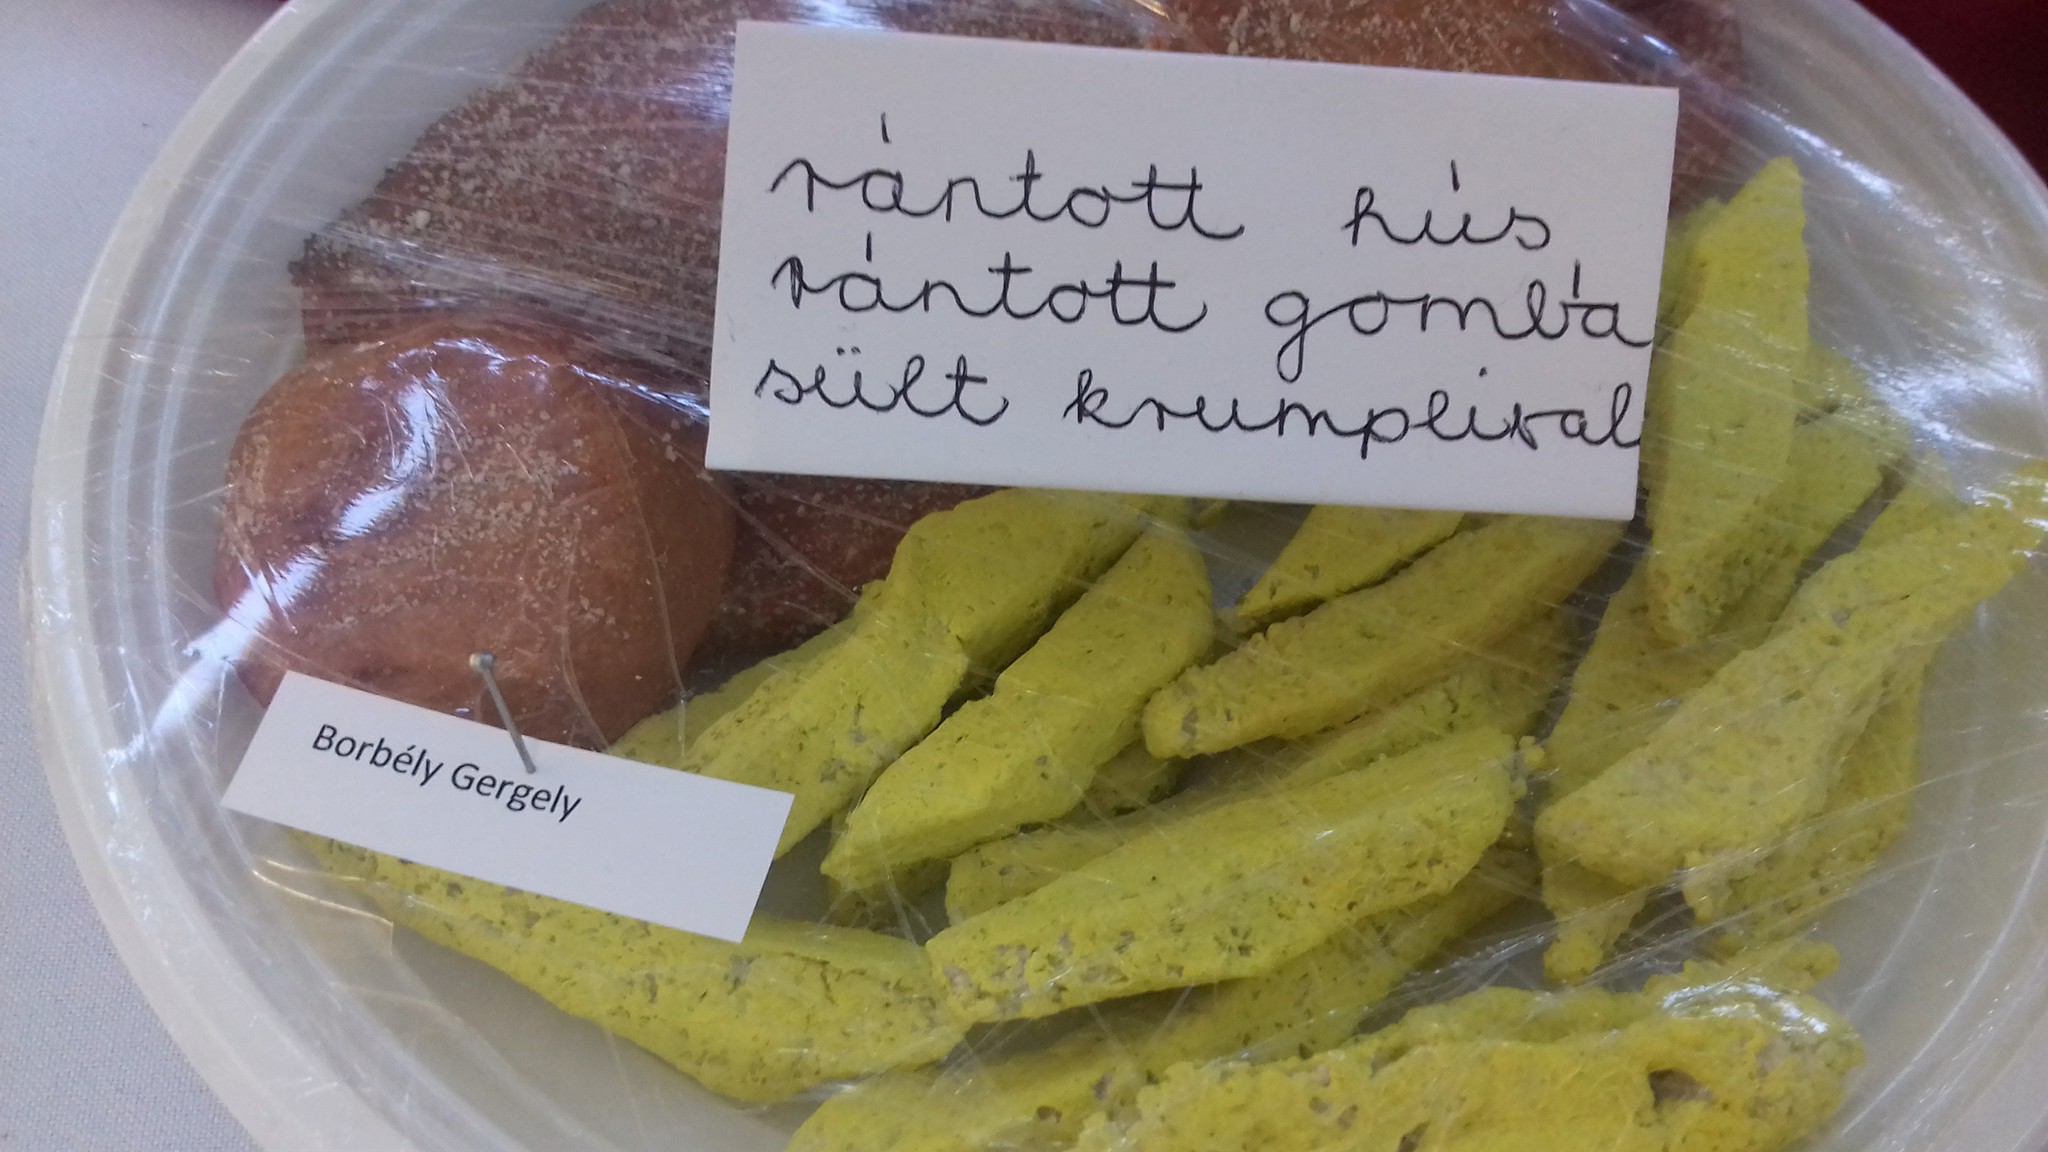 rántott hús
rántott gombá
sült krumplival
Borbély Gergely